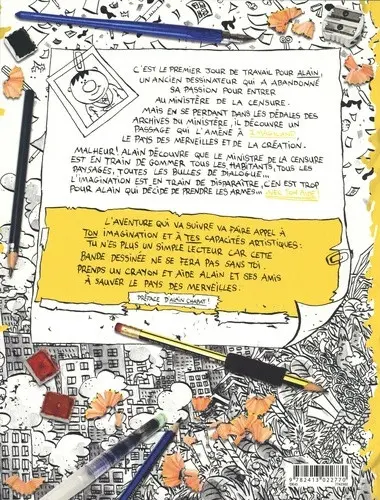 C'EST LE PREMIER JOUR DE TRAVAIL POUR ALAIN,
UN ANCIEN DESSINATEUR QUI A ABANDONNÉ
SA PASSION POUR ENTRER
AU MINISTÈRE DE LA CENSURE.
MAIS EN SE PERDANT DANS LES DÉDALES DES
ARCHIVES DU MINISTÈRE, IL DÉCOUVRE UN
PASSAGE QUI L'AMÈNE À
LE PAYS DES MERVEILLES ET DE LA CRÉATION.
MALHEUR! ALAIN DÉCOUVRE QUE LE MINISTRE DE LA CENSURE
EST EN TRAIN DE GOMMER TOUS LES HABITANTS, TOUS LES
PAYSAGES, TOUTES LES BULLES DE DIALOGUE...
L'IMAGINATION EST EN TRAIN DE DISPARAÎTRE, C'EN EST TROP
POUR ALAIN QUI DÉCIDE DE PRENDRE LES ARMES... AVEC TON AIDE!
L'AVENTURE QUI VA SUIVRE VA FAIRE APPEL À
TON IMAGINATION ET À TES CAPACITÉS ARTISTIQUES:
TU N'ES PLUS UN SIMPLE LECTEUR CAR CETTE
BANDE DESSINÉE NE SE FERA PAS SANS TOI.
PRENDS UN CRAYON ET AIDE ALAIN ET SES AMIS
À SAUVER LE PAYS DES MERVEILLES.
PRÉFACE D'ALAIN CHABAT!
9 782413 022770